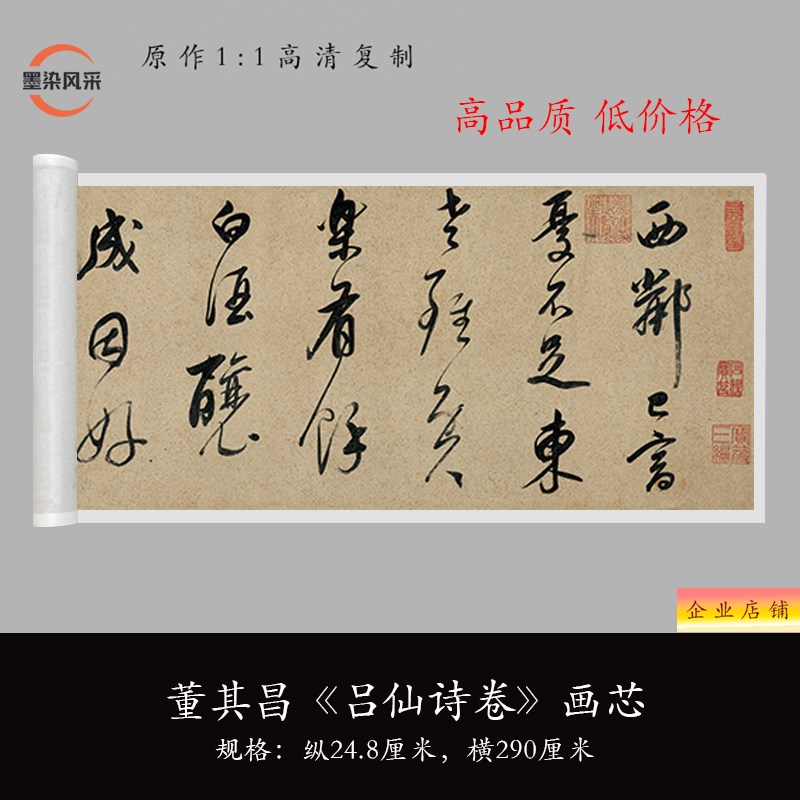 墨染风采
原作1:1高清复制
高品质 低价格
西鄰已富
憂不足東
老雖貧
樂有餘
白酒釀
成因好
企业店铺
董其昌《吕仙诗卷》画芯
规格：纵24.8厘米，横290厘米